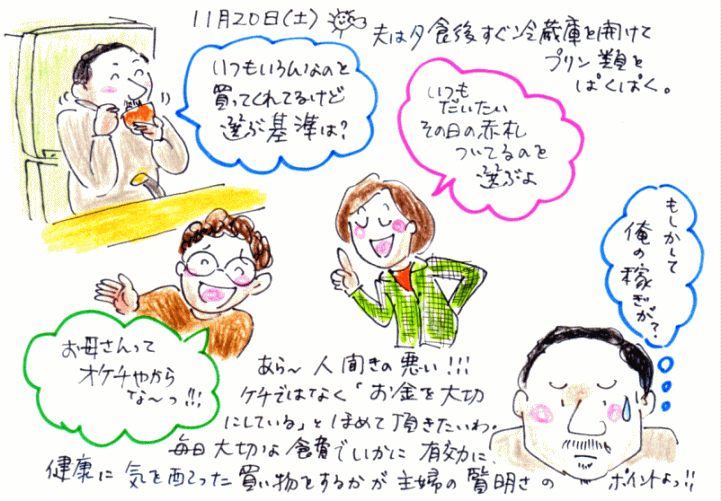 11月20日(土)
夫は夕食後すぐ冷蔵庫を開けて
プリン類を
ぱくぱく。
いつもいろんなのと
買ってくれてるけど
選ぶ基準は?
いつも
だいたい
その日の赤札
ついてるのを
選ぶよ
もしかして
俺の稼
ぎが?
お母さんって
オケチやから
な〜っ!!!
あら〜人聞きの悪い!!!
ケチではなく「お金を大切
にしている」とほめて頂きたいわ。
毎日大切な食費でいかに有効に、
健康に気を配った買い物をするかが主婦の賢明さのポイントよっ!!